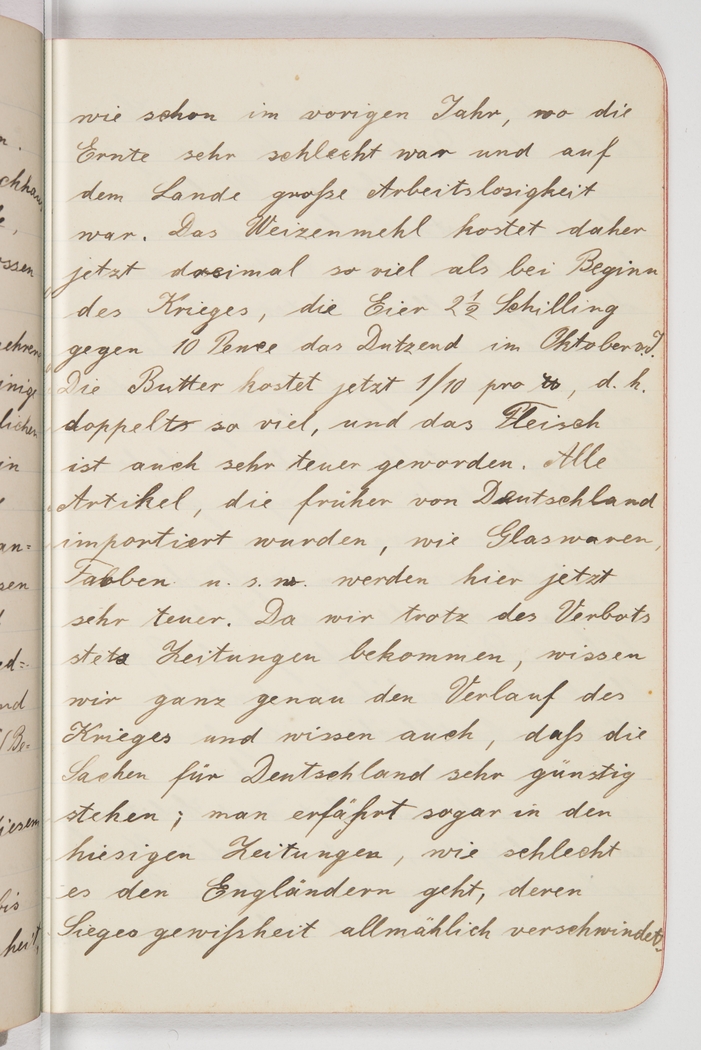 wie schon im vorigen Jahr, wo die
Ernte sehr schlecht war und auf
dem Lande große Arbeitslosigkeit
war. Das Weizenmehl kostet daher
jetzt dreimal so viel als bei Beginn
des Krieges, die Eier 2½ Schilling
gegen 10 Pence das Dutzend im Oktober v.J.
Die Butter kostet jetzt 1/10 pro ℔, d.h.
doppelt so viel, und das Fleisch
ist auch sehr teuer geworden. Alle
Artikel, die früher von Deutschland
importiert wurden, wie Glaswaren,
Farben u.s.w. werden hier jetzt
sehr teuer. Da wir trotz des Verbots
stets Zeitungen bekommen, wissen
wir ganz genau den Verlauf des
Krieges und wissen auch, daß die
Sachen für Deutschland sehr günstig
stehen; man erfährt sogar in den
hiesigen Zeitungen, wie schlecht
es den Engländern geht, deren
Siegesgewißheit allmählich verschwindet,